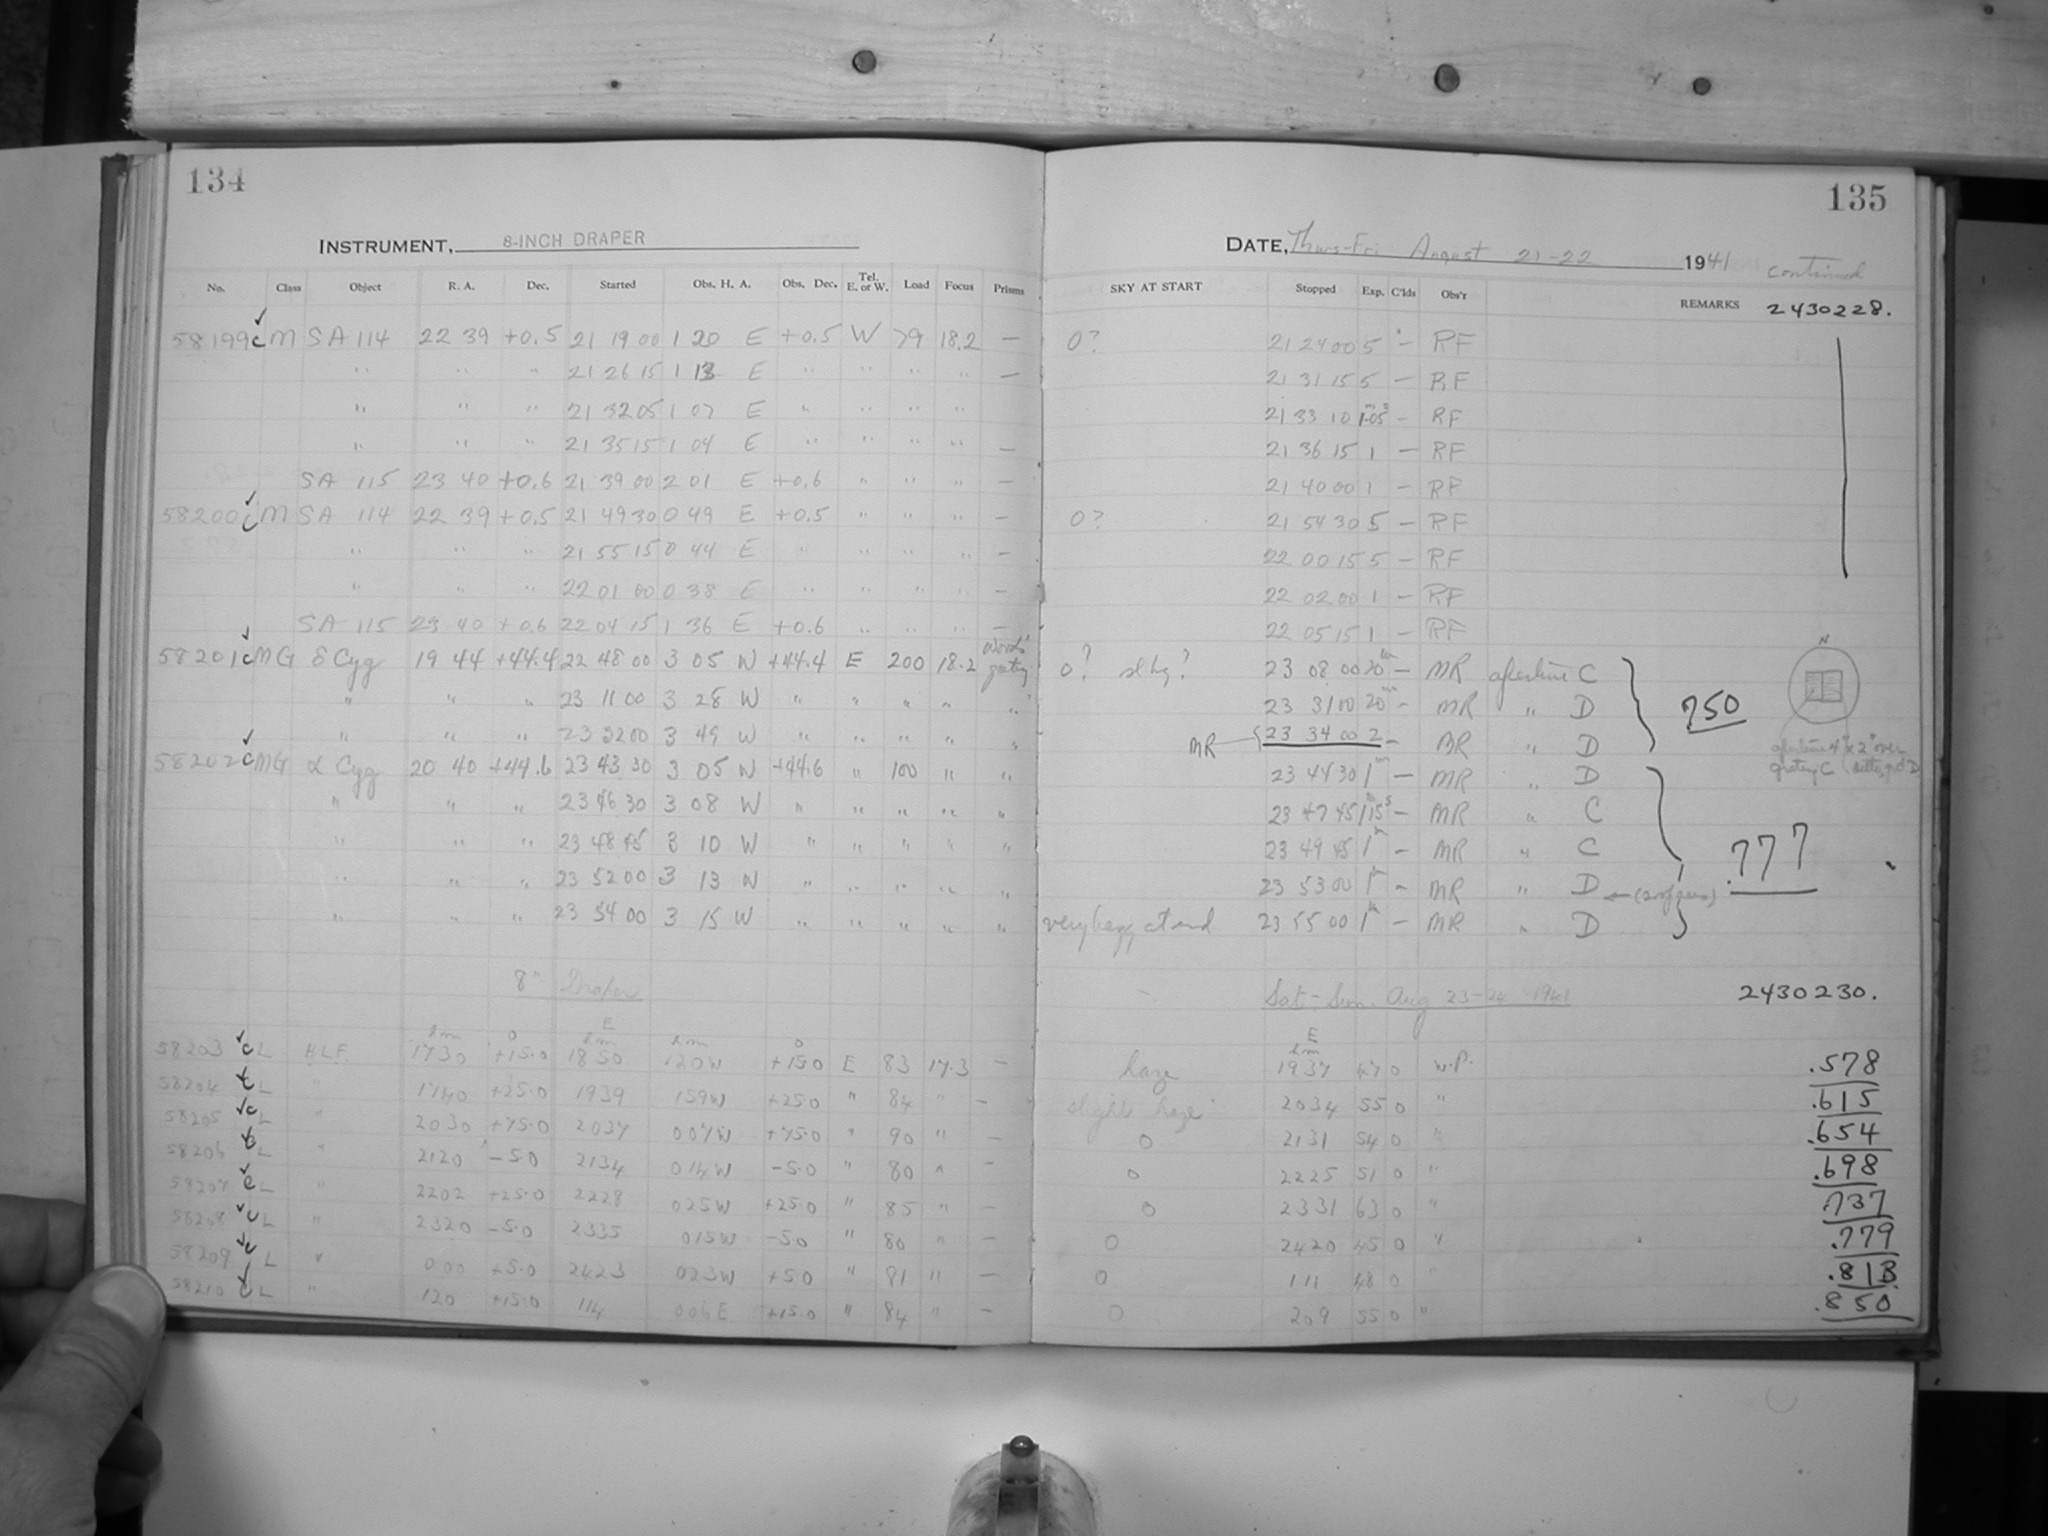 134
135
INSTRUMENT, 8-INCH DRAPER
DATE, Thurs-Fri August 21-22 1941 continued
No. Class Object R. A. Dec. Started Obs. H. A. Obs. Dec. Tel. E. or W. Load Focus Prisms SKY AT START Stopped Exp. C'lds Obs'r REMARKS 2430228.
58199 c M SA 114 22 39 +0.5 21 19 00 1 20 E +0.5 W 79 18.2 — 0? 21 24 00 5 — RF
" " " 21 26 15 1 13 E " " " " — 21 31 15 5 — RF
" " " 21 32 05 1 07 E " " " " 21 33 10 1m05s — RF
" " " 21 35 15 1 04 E " " " " — 21 36 15 1 — RF
SA 115 23 40 +0.6 21 39 00 2 01 E +0.6 " " " — 21 40 00 1 — RF
58200 c M SA 114 22 39 +0.5 21 49 30 0 49 E +0.5 " " " — 0? 21 54 30 5 — RF
" " " 21 55 15 0 44 E " " " " — 22 00 15 5 — RF
" " " 22 01 00 0 38 E " " " " — 22 02 00 1 — RF
SA 115 23 40 +0.6 22 04 15 1 36 E +0.6 " " " — 22 05 15 1 — RF
58201 c MG δ Cyg 19 44 +44.4 22 48 00 3 05 W +44.4 E 200 18.2 Woods' grating 0? sl hz? 23 08 00 20m — MR aperture C
" " " 23 11 00 3 28 W " " " " " 23 31 00 20m — MR " D .750
" " " 23 32 00 3 49 W " " " " " MR 23 34 00 2 — MR " D
58202 c MG α Cyg 20 40 +44.6 23 43 30 3 05 W +44.6 " 100 " " 23 44 30 1m — MR " D
" " " 23 46 30 3 08 W " " " " " 23 47 45 1m15s — MR " C
" " " 23 48 45 3 10 W " " " " " 23 49 45 1m — MR " C .777
" " " 23 52 00 3 13 W " " " " " 23 53 00 1m — MR " D
" " " 23 54 00 3 15 W " " " " " very hazy at end 23 55 00 1m — MR " D
N
aperture 4" x 2" over grating C
8" Draper
Sat - Sun. Aug 23-24 1941 2430230.
h m o E h m h m o E h m
58203 c L HLF 1730 +15.0 1850 120W +15.0 E 83 17.3 — haze 1937 47 0 W.P. .578
58204 c L " 1740 +25.0 1939 159W +25.0 " 84 " — slight haze 2034 55 0 " .615
58205 c L " 2030 +75.0 2037 007W +75.0 " 90 " — 0 2131 54 0 " .654
58206 c L " 2120 -5.0 2134 014W -5.0 " 80 " — 0 2225 51 0 " .698
58207 c L " 2202 +25.0 2228 025W +25.0 " 85 " — 0 2331 63 0 " .737
58208 c L " 2320 -5.0 2335 015W -5.0 " 80 " — 0 2420 45 0 " .779
58209 c L " 000 +5.0 2423 023W +5.0 " 81 " — 0 111 48 0 " .813
58210 c L " 120 +15.0 114 006E +15.0 " 84 " — 0 209 55 0 " .850